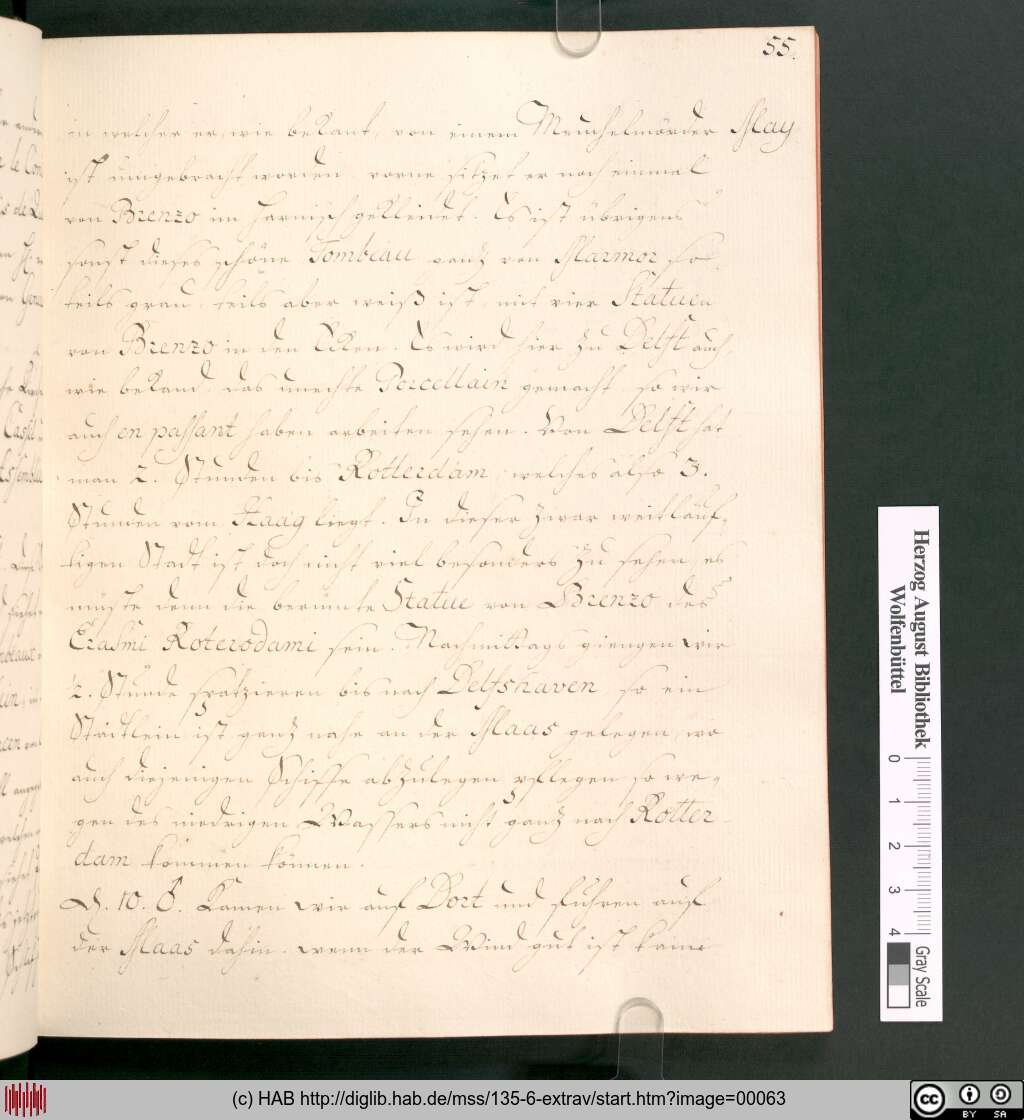 55.
in welcher er, wie bekant, von einem Meuchelmörder May
ist umgebracht worden. vorne sitzet er noch einmal
von Brenzo im Harnisch gekleidet. Es ist übrigens
sonst dieses schöne Tombeau ganz von Marmor so
teils grau, teils aber weiß ist, mit vier Statuen
von Brenzo in den Ecken. Es wird hier zu Delft auch
wie bekand, das unechte Porcellain gemacht, so wir
auch en passant haben arbeiten sehen. Von Delft hat
man 2. Stunden bis Rotterdam, welches also 3.
Stunden vom Haag liegt. In dieser zwar weitläuf-
tigen Stadt ist doch nicht viel besonders zu sehen, es
müste denn die berümte Statue von Brenzo des
Erasmi Roterodami sein. Nachmittags giengen wir
½. Stunde spatzieren bis nach Delfshaven, so ein
Städtlein ist ganz nahe an der Maas gelegen, wo
auch diejenigen Schiffe abzulegen pflegen, so we-
gen des niedrigen Wassers nicht ganz nach Rotter-
dam kommen können.
D. 10. kamen wir auf Dort und fuhren auf
der Maas dahin. wenn der Wind gut ist kann
Herzog August Bibliothek
Wolfenbüttel
0 1 2 3 4
Gray Scale
(c) HAB http://diglib.hab.de/mss/135-6-extrav/start.htm?image=00063
cc BY SA